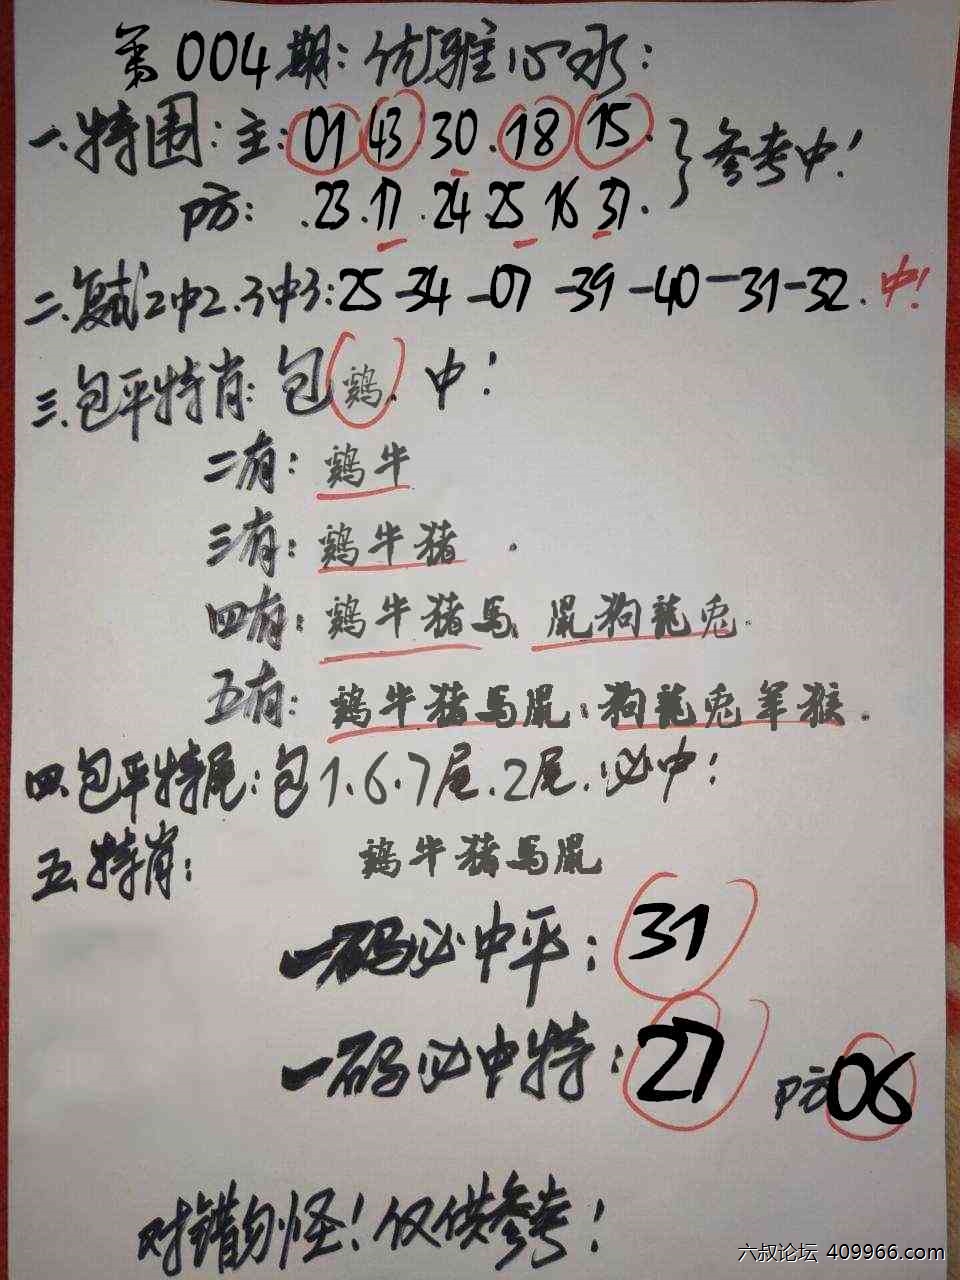 第004期：优雅心水：
一.特围：主：01 43.30.18 15.
防：.23.17.24.25 16 37.
}参考中！
二.复式2中2.3中3：25-34-07-39-40-31-32.中！
三.包平特肖：包鷄.中！
二有：鷄牛
三有：鷄牛猪.
四有：鷄牛猪馬.鼠狗龍兔.
五有：鷄牛猪馬鼠.狗龍兔羊猴.
四.包平特尾：包1.6.7尾.2尾.必中！
五.特肖：鷄牛猪馬鼠
一码必中平：31
一码必中特：27 防06
对错勿怪！仅供参考！
六叔论坛 409966.com